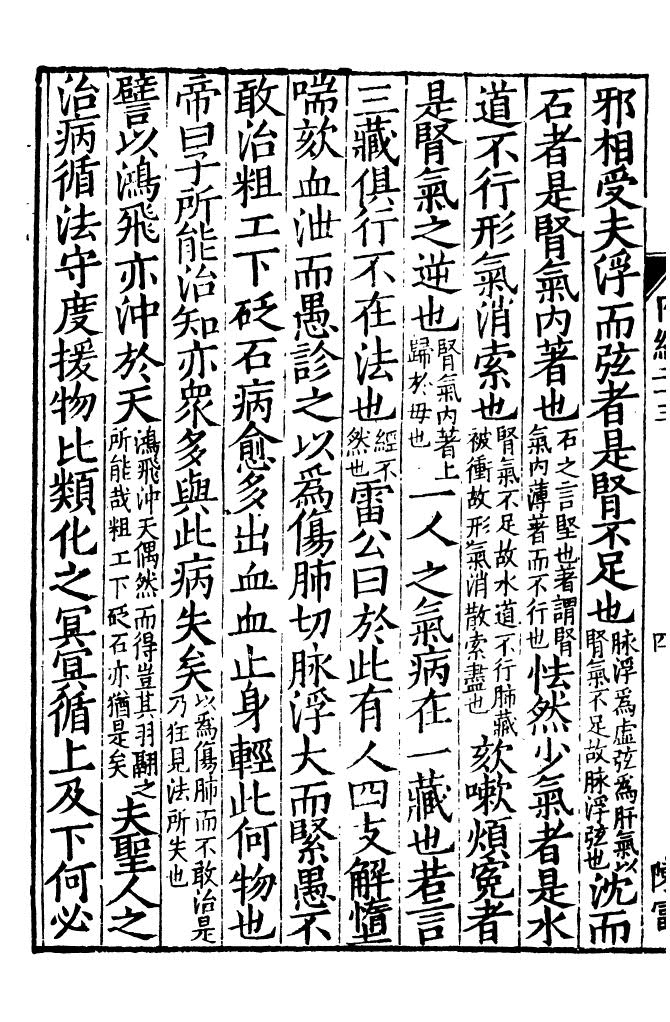 邪相受夫浮而弦者是腎不足也脉浮爲虛弦爲肝氣以腎氣不足故脉浮弦也沈而
石者是腎氣內著也石之言堅也著謂腎氣內薄著而不行也怯然少氣者是水
道不行形氣消索也腎氣不足故水道不行肺藏被衝故形氣消散索盡也欬嗽煩冤者
是腎氣之逆也腎氣內著上歸於母也一人之氣病在一藏也若言
三藏俱行不在法也經不然也雷公曰於此有人四支解墮
喘欬血泄而愚診之以爲傷肺切脉浮大而緊愚不
敢治粗工下砭石病愈多出血血止身輕此何物也
帝曰子所能治知亦衆多與此病失矣以爲傷肺而不敢治是乃狂見法所失也
譬以鴻飛亦沖於天鴻飛沖天偶然而得豈其羽翮之所能哉粗工下砭石亦猶是矣夫聖人之
治病循法守度援物比類化之冥冥循上及下何必